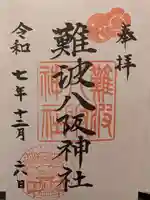 奉拝
難波八阪神社
難波
八阪
神社
令和七年十二月六日